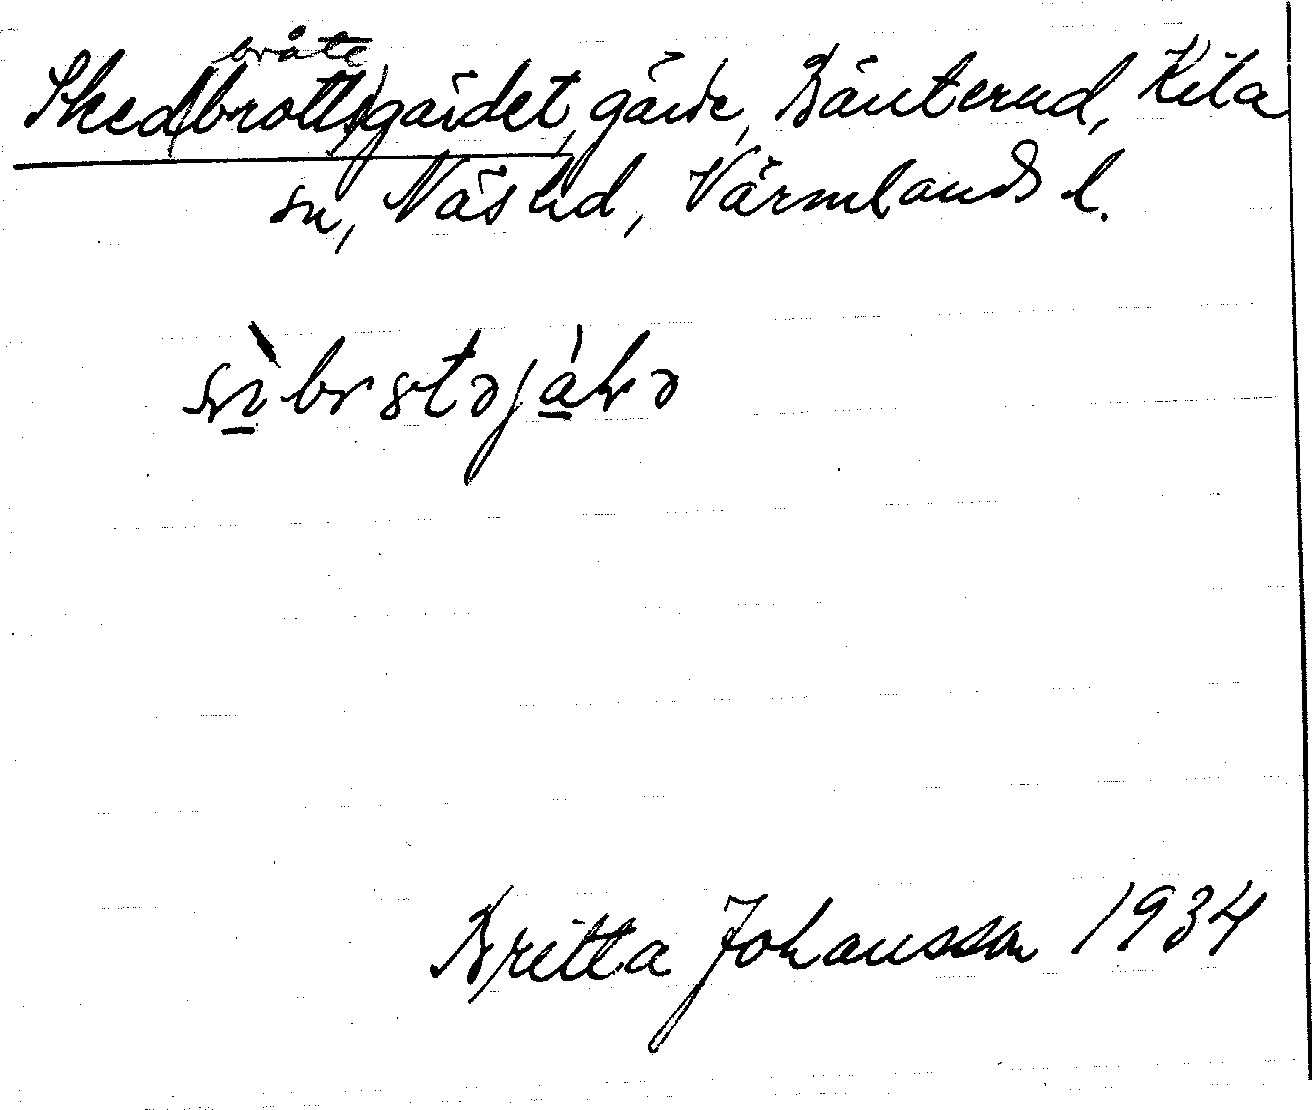 bråte
Sked(brotts)gärdet, gärde, Bänterud, Kila
sn, Näs hd, Värmlands l.
Britta Johansson 1934